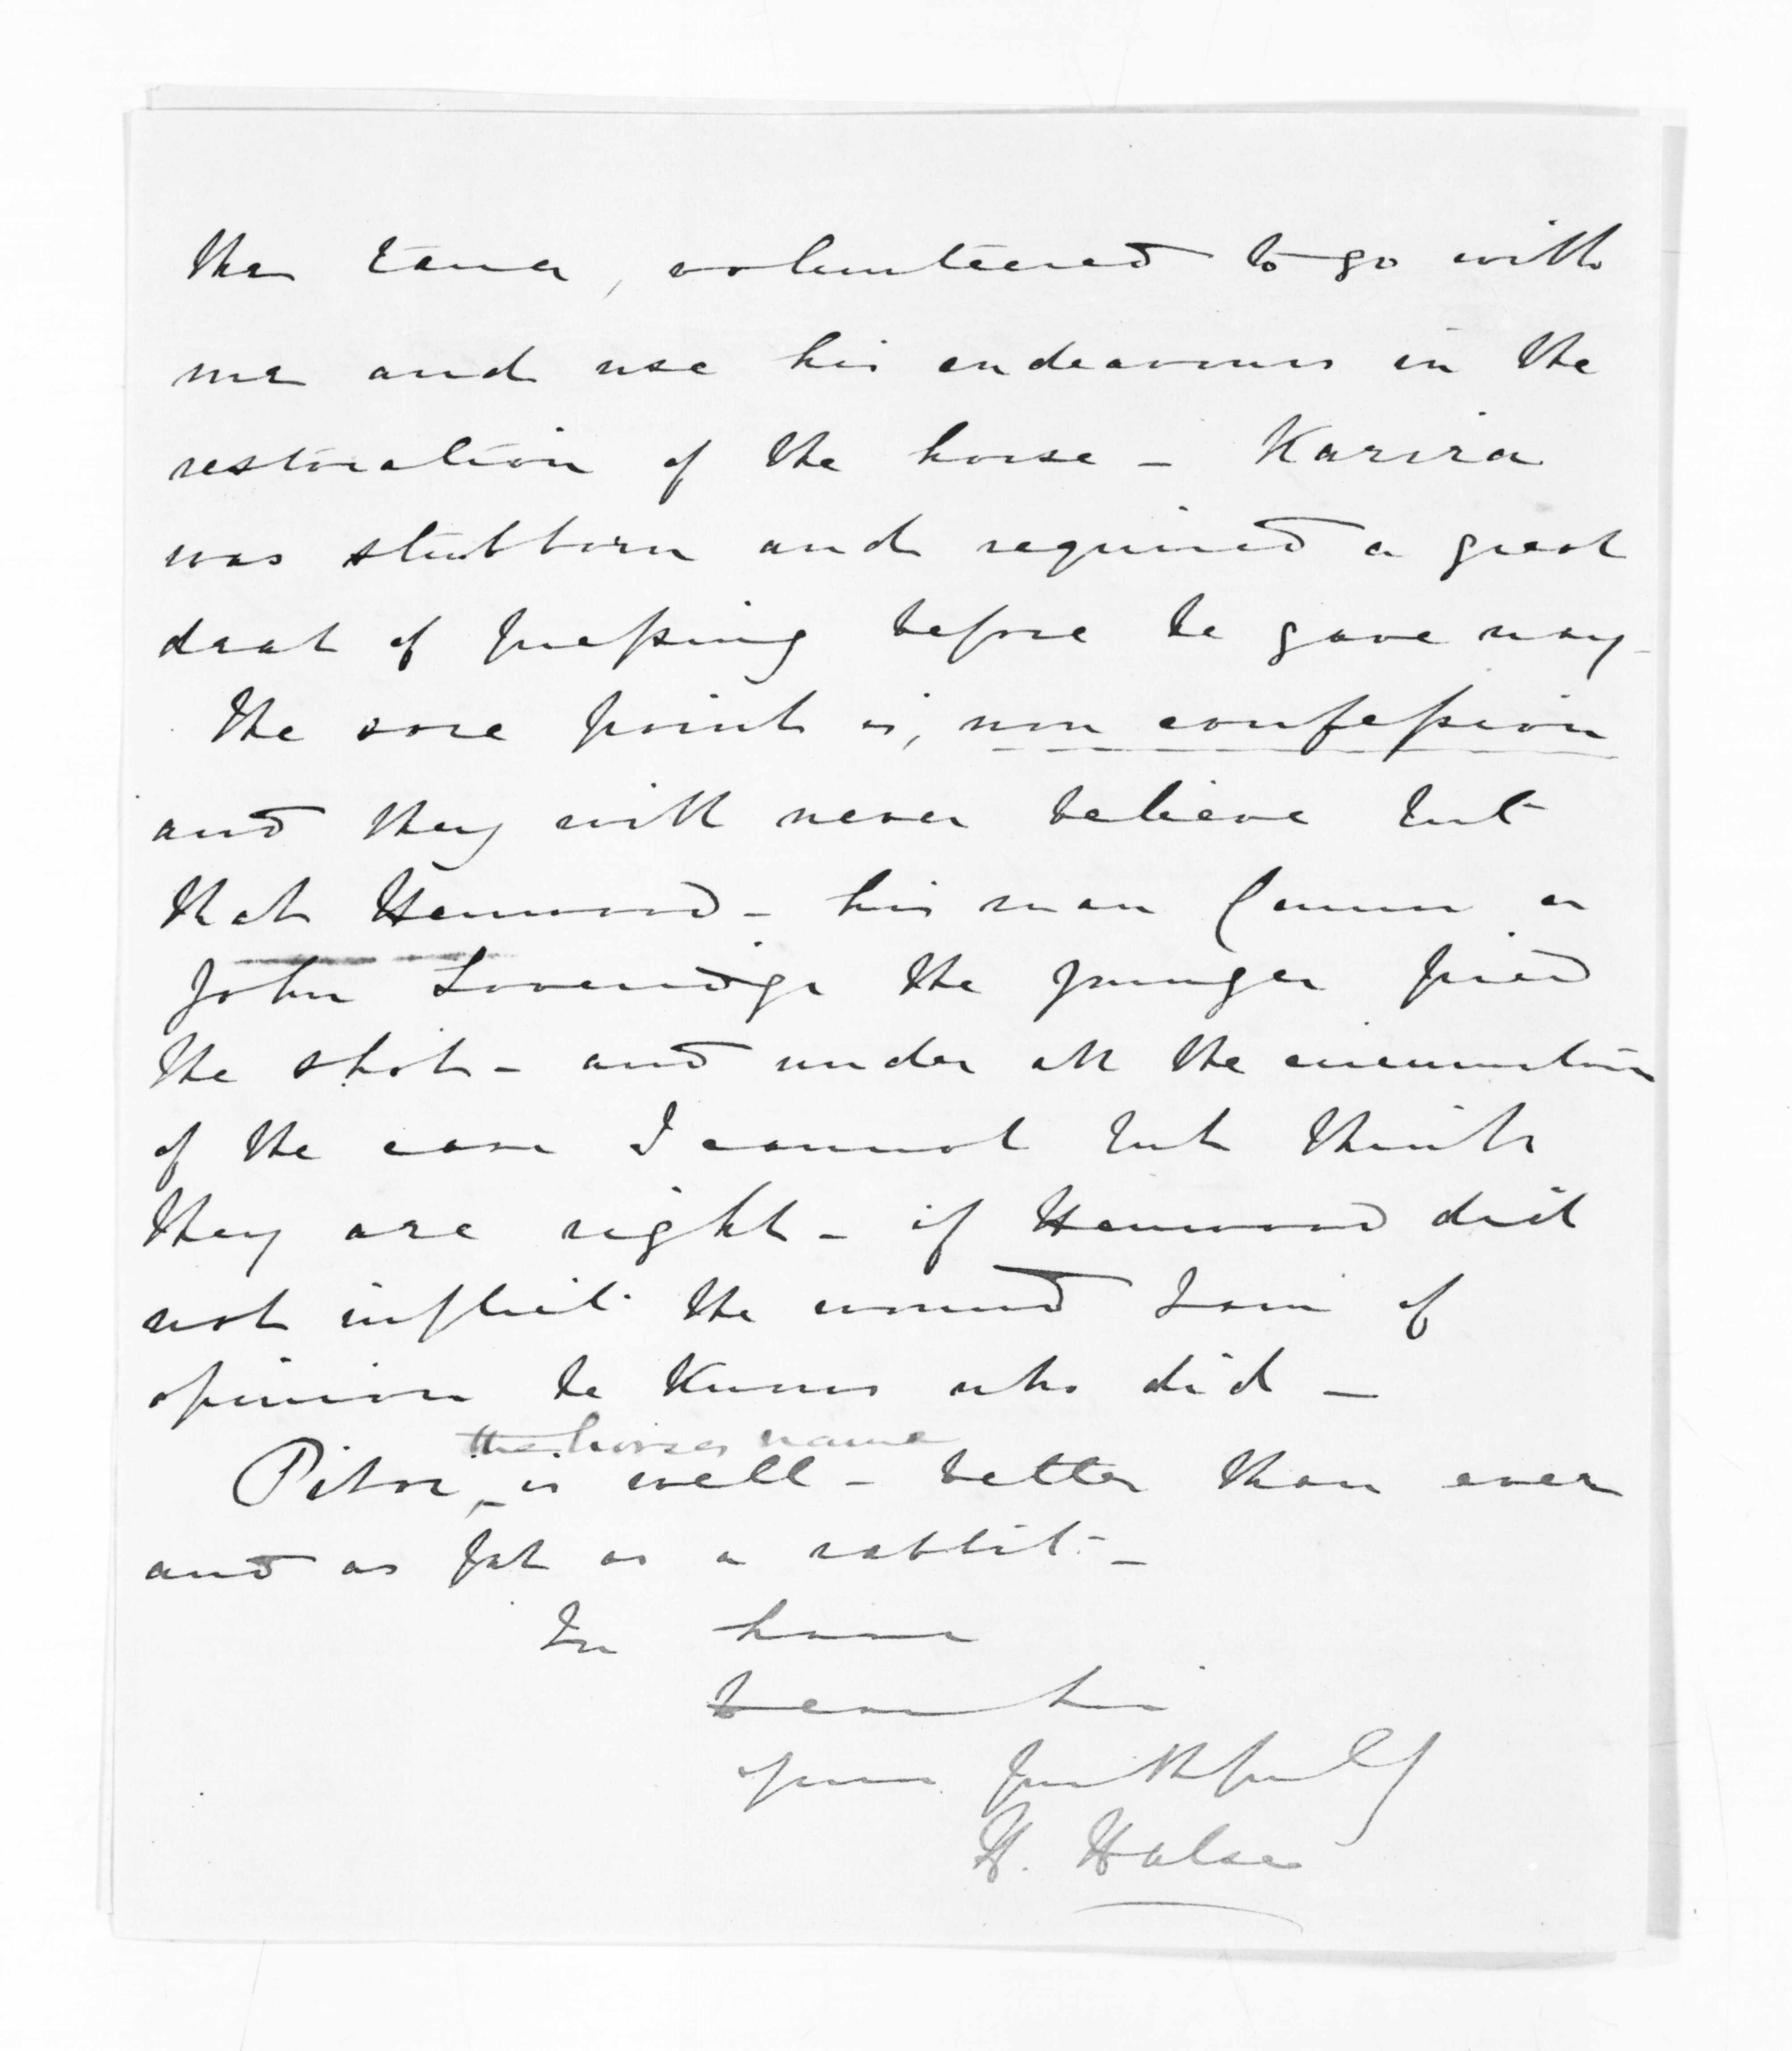 the Eana, volunteered to go with
me and use his endeavours in the
restoration of the horse - Karira
was stubborn and required a great
deal of pressing before he gave way -
The sore point is, non confession
and they will never believe but
that Henwood - his man or
John Loveridge the younger fired
the shot - and under all the
of the case I cannot but think
they are right - if Henwood did
not inflict the wound I am of
opinion he knows who did -
the horses name
Pitoe, is well - better than ever
and as fat as a rabbit -
In haste
Dear Sir
yours faithfully
H. Halse